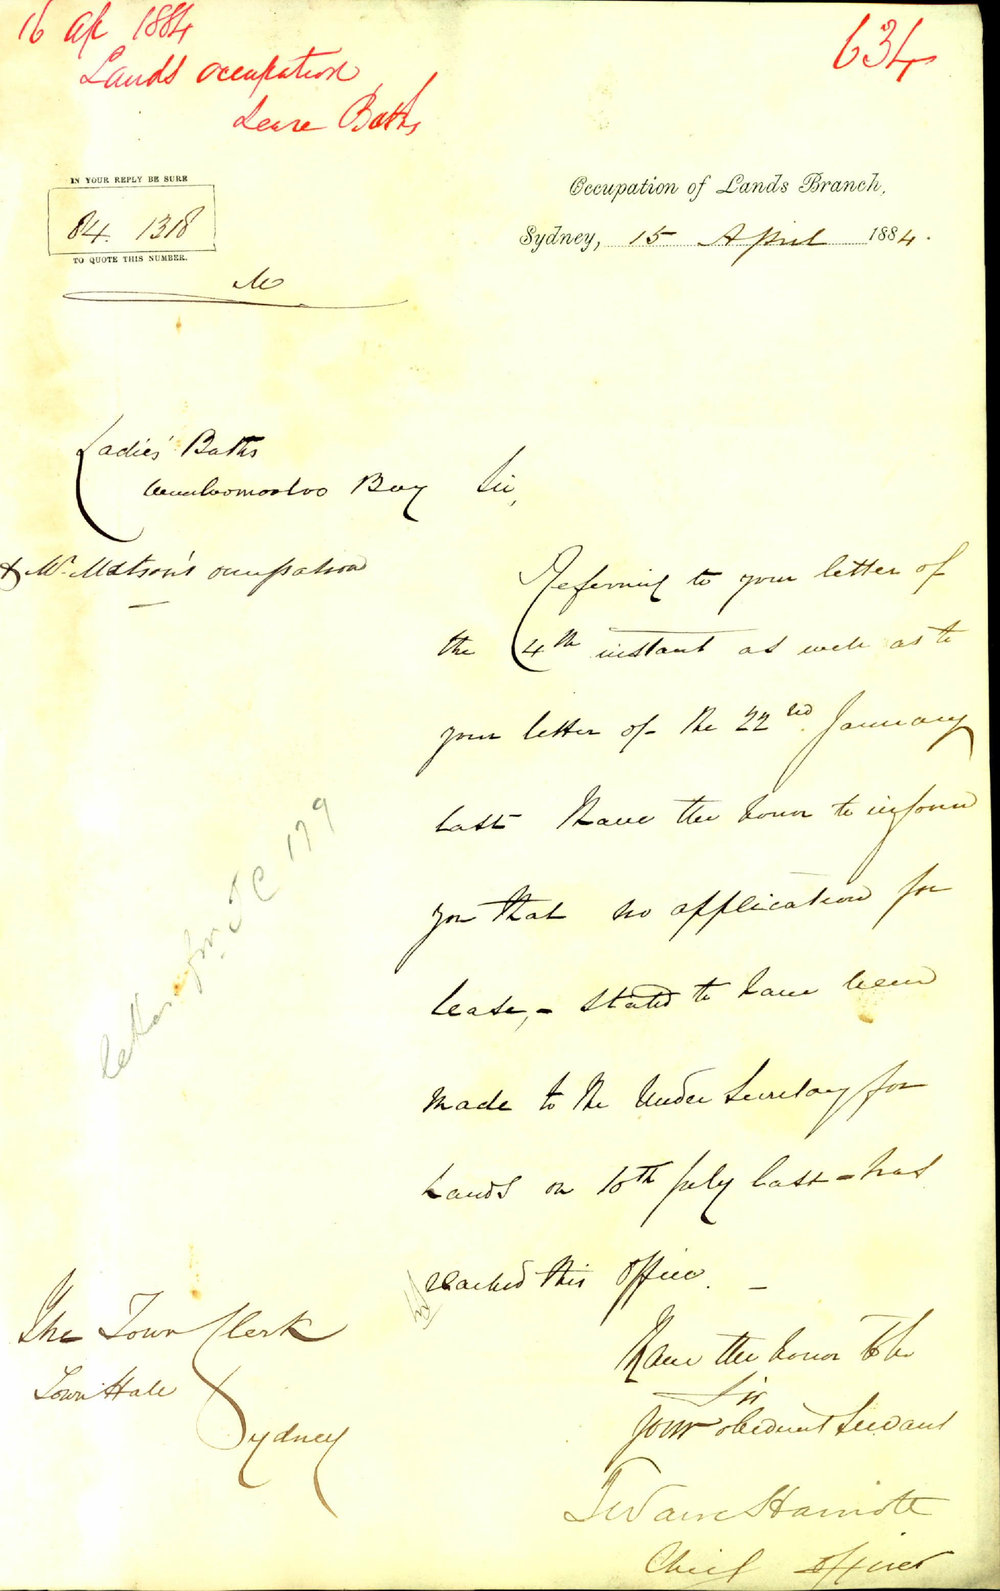 16 Ap 1884
Lands Occupation
Lease Baths
634
IN YOUR REPLY BE SURE
84. 1318
TO QUOTE THIS NUMBER.
Occupation of Lands Branch,
Sydney, 15 April 1884.
Ladies' Baths
Woolloomooloo Bay
& Mr. Matson's occupation
Sir,
Referring to your letter of
the 4th instant as well as to
your letter of the 22nd January
last I have the honor to inform
you that no application for
lease, - stated to have been
made to the Under Secretary for
Lands on 10th July last - has
reached this office. -
I have the honor to be
Sir
Your obedient Servant
Chief Officer
The Town Clerk
Town Hall
Sydney